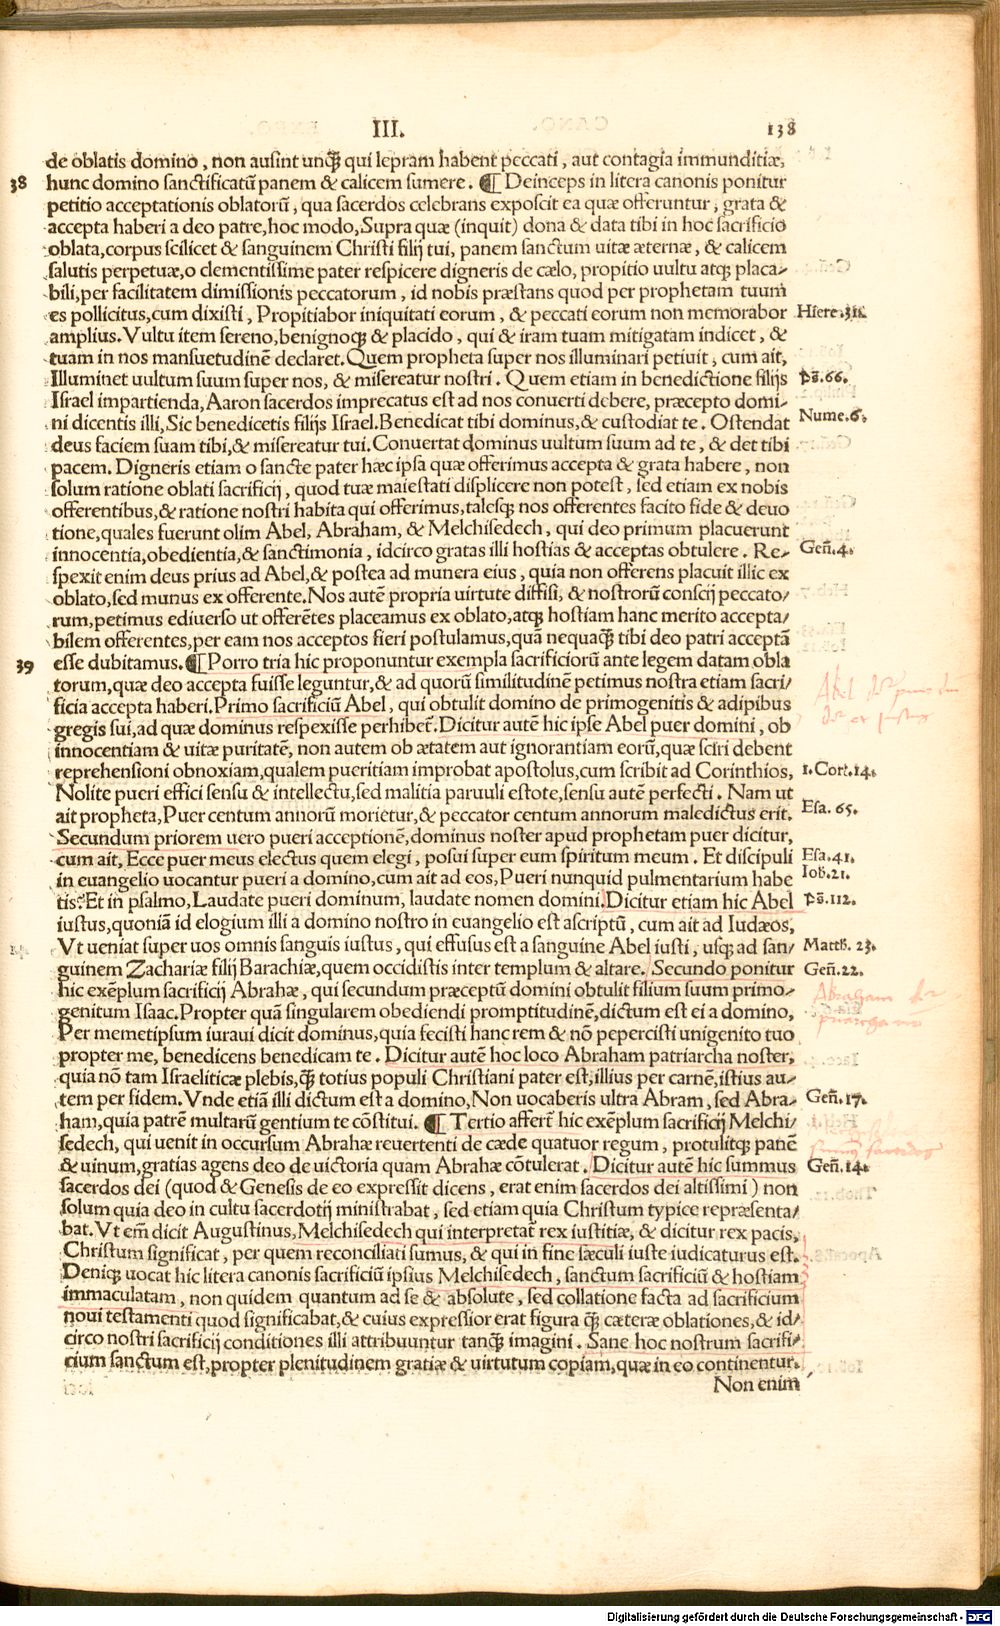 III.
138
de oblatis domino, non ausint unq̃ȝ qui lepram habent peccati, aut contagia immunditiæ,
38 hunc domino sanctificatũ panem & calicem sumere. ¶ Deinceps in litera canonis ponitur
petitio acceptationis oblatorũ, qua sacerdos celebrans exposcit ea quæ offeruntur, grata &
accepta haberi a deo patre, hoc modo, Supra quæ (inquit) dona & data tibi in hoc sacrificio
oblata, corpus scilicet & sanguinem Christi filij tui, panem sanctum uitæ æternæ, & calicem
salutis perpetuæ, o clementissime pater respicere digneris de cælo, propitio uultu atqȝ placa-
bili, per facilitatem dimissionis peccatorum, id nobis præstans quod per prophetam tuum
es pollicitus, cum dixisti, Propitiabor iniquitati eorum, & peccati eorum non memorabor Hiere.31.
amplius. Vultu item sereno, benignoqȝ & placido, qui & iram tuam mitigatam indicet, &
tuam in nos mansuetudinẽ declaret. Quem propheta super nos illuminari petiuit, cum ait,
Illuminet uultum suum super nos, & misereatur nostri. Quem etiam in benedictione filijs Ps̃.66.
Israel impartienda, Aaron sacerdos imprecatus est ad nos conuerti debere, præcepto domi-
ni dicentis illi, Sic benedicetis filijs Israel. Benedicat tibi dominus, & custodiat te. Ostendat Nume.6.
deus faciem suam tibi, & misereatur tui. Conuertat dominus uultum suum ad te, & det tibi
pacem. Digneris etiam o sancte pater hæc ipsa quæ offerimus accepta & grata habere, non
solum ratione oblati sacrificij, quod tuæ maiestati displicere non potest, sed etiam ex nobis
offerentibus, & ratione nostri habita qui offerimus, talesqȝ nos offerentes facito fide & deuo
tione, quales fuerunt olim Abel, Abraham, & Melchisedech, qui deo primum placuerunt
innocentia, obedientia, & sanctimonia, idcirco gratas illi hostias & acceptas obtulere. Re- Geñ.4.
spexit enim deus prius ad Abel, & postea ad munera eius, quia non offerens placuit illic ex
oblato, sed munus ex offerente. Nos autẽ propria uirtute diffisi, & nostrorũ conscij peccato-
rum, petimus ediuerso ut offerẽtes placeamus ex oblato, atqȝ hostiam hanc merito accepta-
bilem offerentes, per eam nos acceptos fieri postulamus, quã nequaq̃ȝ tibi deo patri acceptã
39 esse dubitamus. ¶ Porro tria hic proponuntur exempla sacrificiorũ ante legem datam obla
torum, quæ deo accepta fuisse leguntur, & ad quorũ similitudinẽ petimus nostra etiam sacri-
ficia accepta haberi. Primo sacrificiũ Abel, qui obtulit domino de primogenitis & adipibus
gregis sui, ad quæ dominus respexisse perhibet̃. Dicitur autẽ hic ipse Abel puer domini, ob
innocentiam & uitæ puritatẽ, non autem ob ætatem aut ignorantiam eorũ, quæ sciri debent
reprehensioni obnoxiam, qualem pueritiam improbat apostolus, cum scribit ad Corinthios, 1. Cor.14.
Nolite pueri effici sensu & intellectu, sed malitia paruuli estote, sensu autẽ perfecti. Nam ut
ait propheta, Puer centum annorũ morietur, & peccator centum annorum maledictus erit. Esa. 65.
Secundum priorem uero pueri acceptionẽ, dominus noster apud prophetam puer dicitur,
cum ait, Ecce puer meus electus quem elegi, posui super eum spiritum meum. Et discipuli Esa.41.
in euangelio uocantur pueri a domino, cum ait ad eos, Pueri nunquid pulmentarium habe Ioh̃.21.
tis? Et in psalmo, Laudate pueri dominum, laudate nomen domini. Dicitur etiam hic Abel Ps̃.112.
iustus, quoniã id elogium illi a domino nostro in euangelio est ascriptũ, cum ait ad Iudæos,
Vt ueniat super uos omnis sanguis iustus, qui effusus est a sanguine Abel iusti, usqȝ ad san- Matth. 23.
guinem Zachariæ filij Barachiæ, quem occidistis inter templum & altare. Secundo ponitur Geñ.22.
hic exẽplum sacrificij Abrahæ, qui secundum præceptũ domini obtulit filium suum primo-
genitum Isaac. Propter quã singularem obediendi promptitudinẽ, dictum est ei a domino,
Per memetipsum iuraui dicit dominus, quia fecisti hanc rem & nõ pepercisti unigenito tuo
propter me, benedicens benedicam te. Dicitur autẽ hoc loco Abraham patriarcha noster,
quia nõ tam Israeliticæ plebis, q̃ȝ totius populi Christiani pater est, illius per carnẽ, istius au-
tem per fidem. Vnde etiã illi dictum est a domino, Non uocaberis ultra Abram, sed Abra- Geñ.17.
ham, quia patrẽ multarũ gentium te cõstitui. ¶ Tertio affert̃ hic exẽplum sacrificij Melchi-
sedech, qui uenit in occursum Abrahæ reuertenti de cæde quatuor regum, protulitqȝ panẽ
& uinum, gratias agens deo de uictoria quam Abrahæ cõtulerat. Dicitur autẽ hic summus Geñ.14.
sacerdos dei (quod & Genesis de eo expressit dicens, erat enim sacerdos dei altissimi) non
solum quia deo in cultu sacerdotij ministrabat, sed etiam quia Christum typice repræsenta-
bat. Vt em̃ dicit Augustinus, Melchisedech qui interpretat̃ rex iustitiæ, & dicitur rex pacis,
Christum significat, per quem reconciliati sumus, & qui in fine sæculi iuste iudicaturus est.
Deniqȝ uocat hic litera canonis sacrificiũ ipsius Melchisedech, sanctum sacrificiũ & hostiam
immaculatam, non quidem quantum ad se & absolute, sed collatione facta ad sacrificium
noui testamenti quod significabat, & cuius expressior erat figura q̃ȝ cæteræ oblationes, & id-
circo nostri sacrificij conditiones illi attribuuntur tanq̃ȝ imagini. Sane hoc nostrum sacrifi-
cium sanctum est, propter plenitudinem gratiæ & uirtutum copiam, quæ in eo continentur.
Non enim
Digitalisierung gefördert durch die Deutsche Forschungsgemeinschaft - DFG